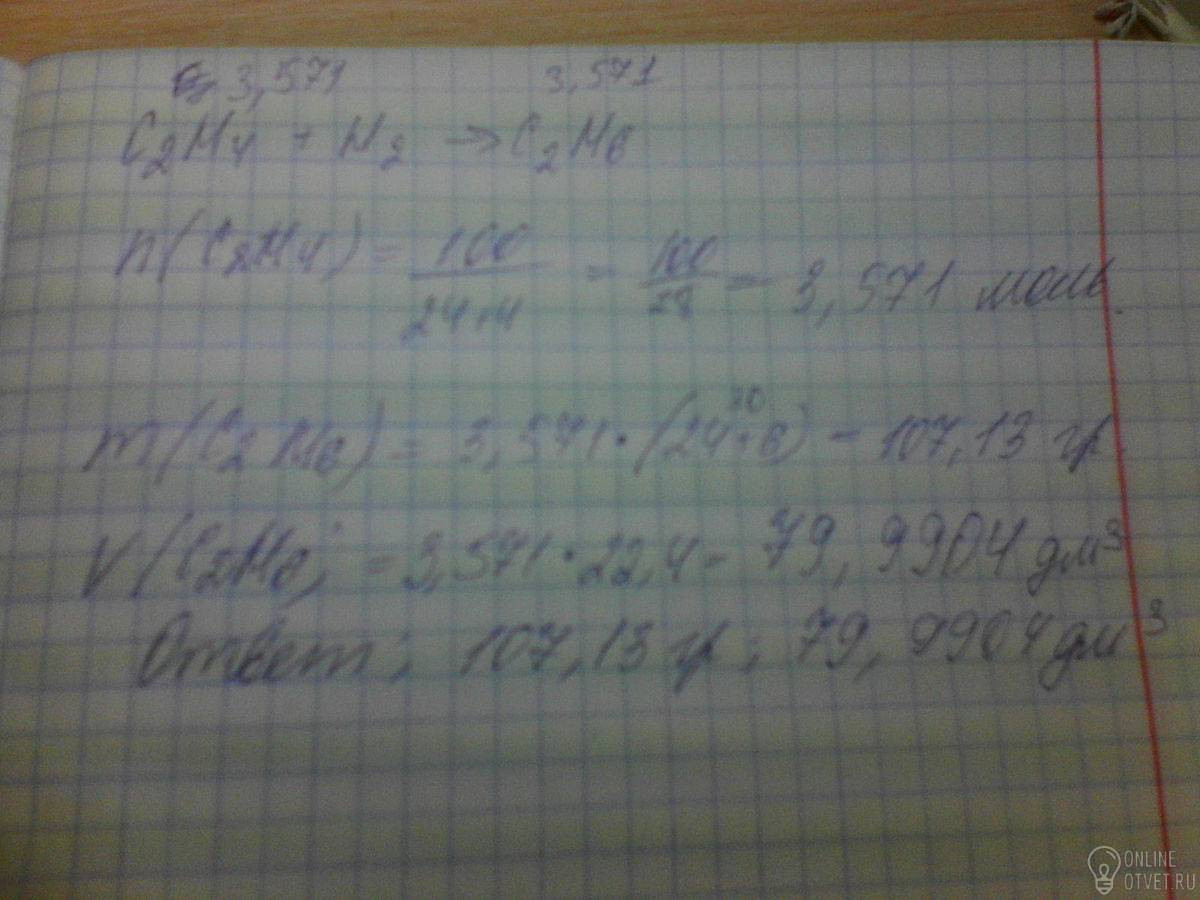 3,571 3,571
C₂H₄ + H₂ → C₂H₆
n(C₂H₄) = 100/24+4 = 100/28 = 3,571 моль.
30
m(C₂H₆) = 3,571·(24+6) = 107,13 гр.
V(C₂H₆) = 3,571·22,4 = 79,9904 дм³
Ответ: 107,13 гр; 79,9904 дм³
ONLINE
OTVET.RU